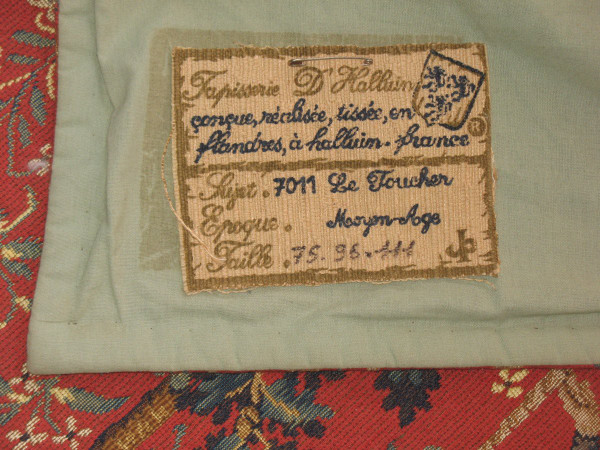 Tapisserie D'Halluin
conçue, réalisée, tissée, en
flandres, à halluin. france ®
Sujet. 7011 Le Toucher
Epoque. Moyen-Age
Taille. 75. 96. 111